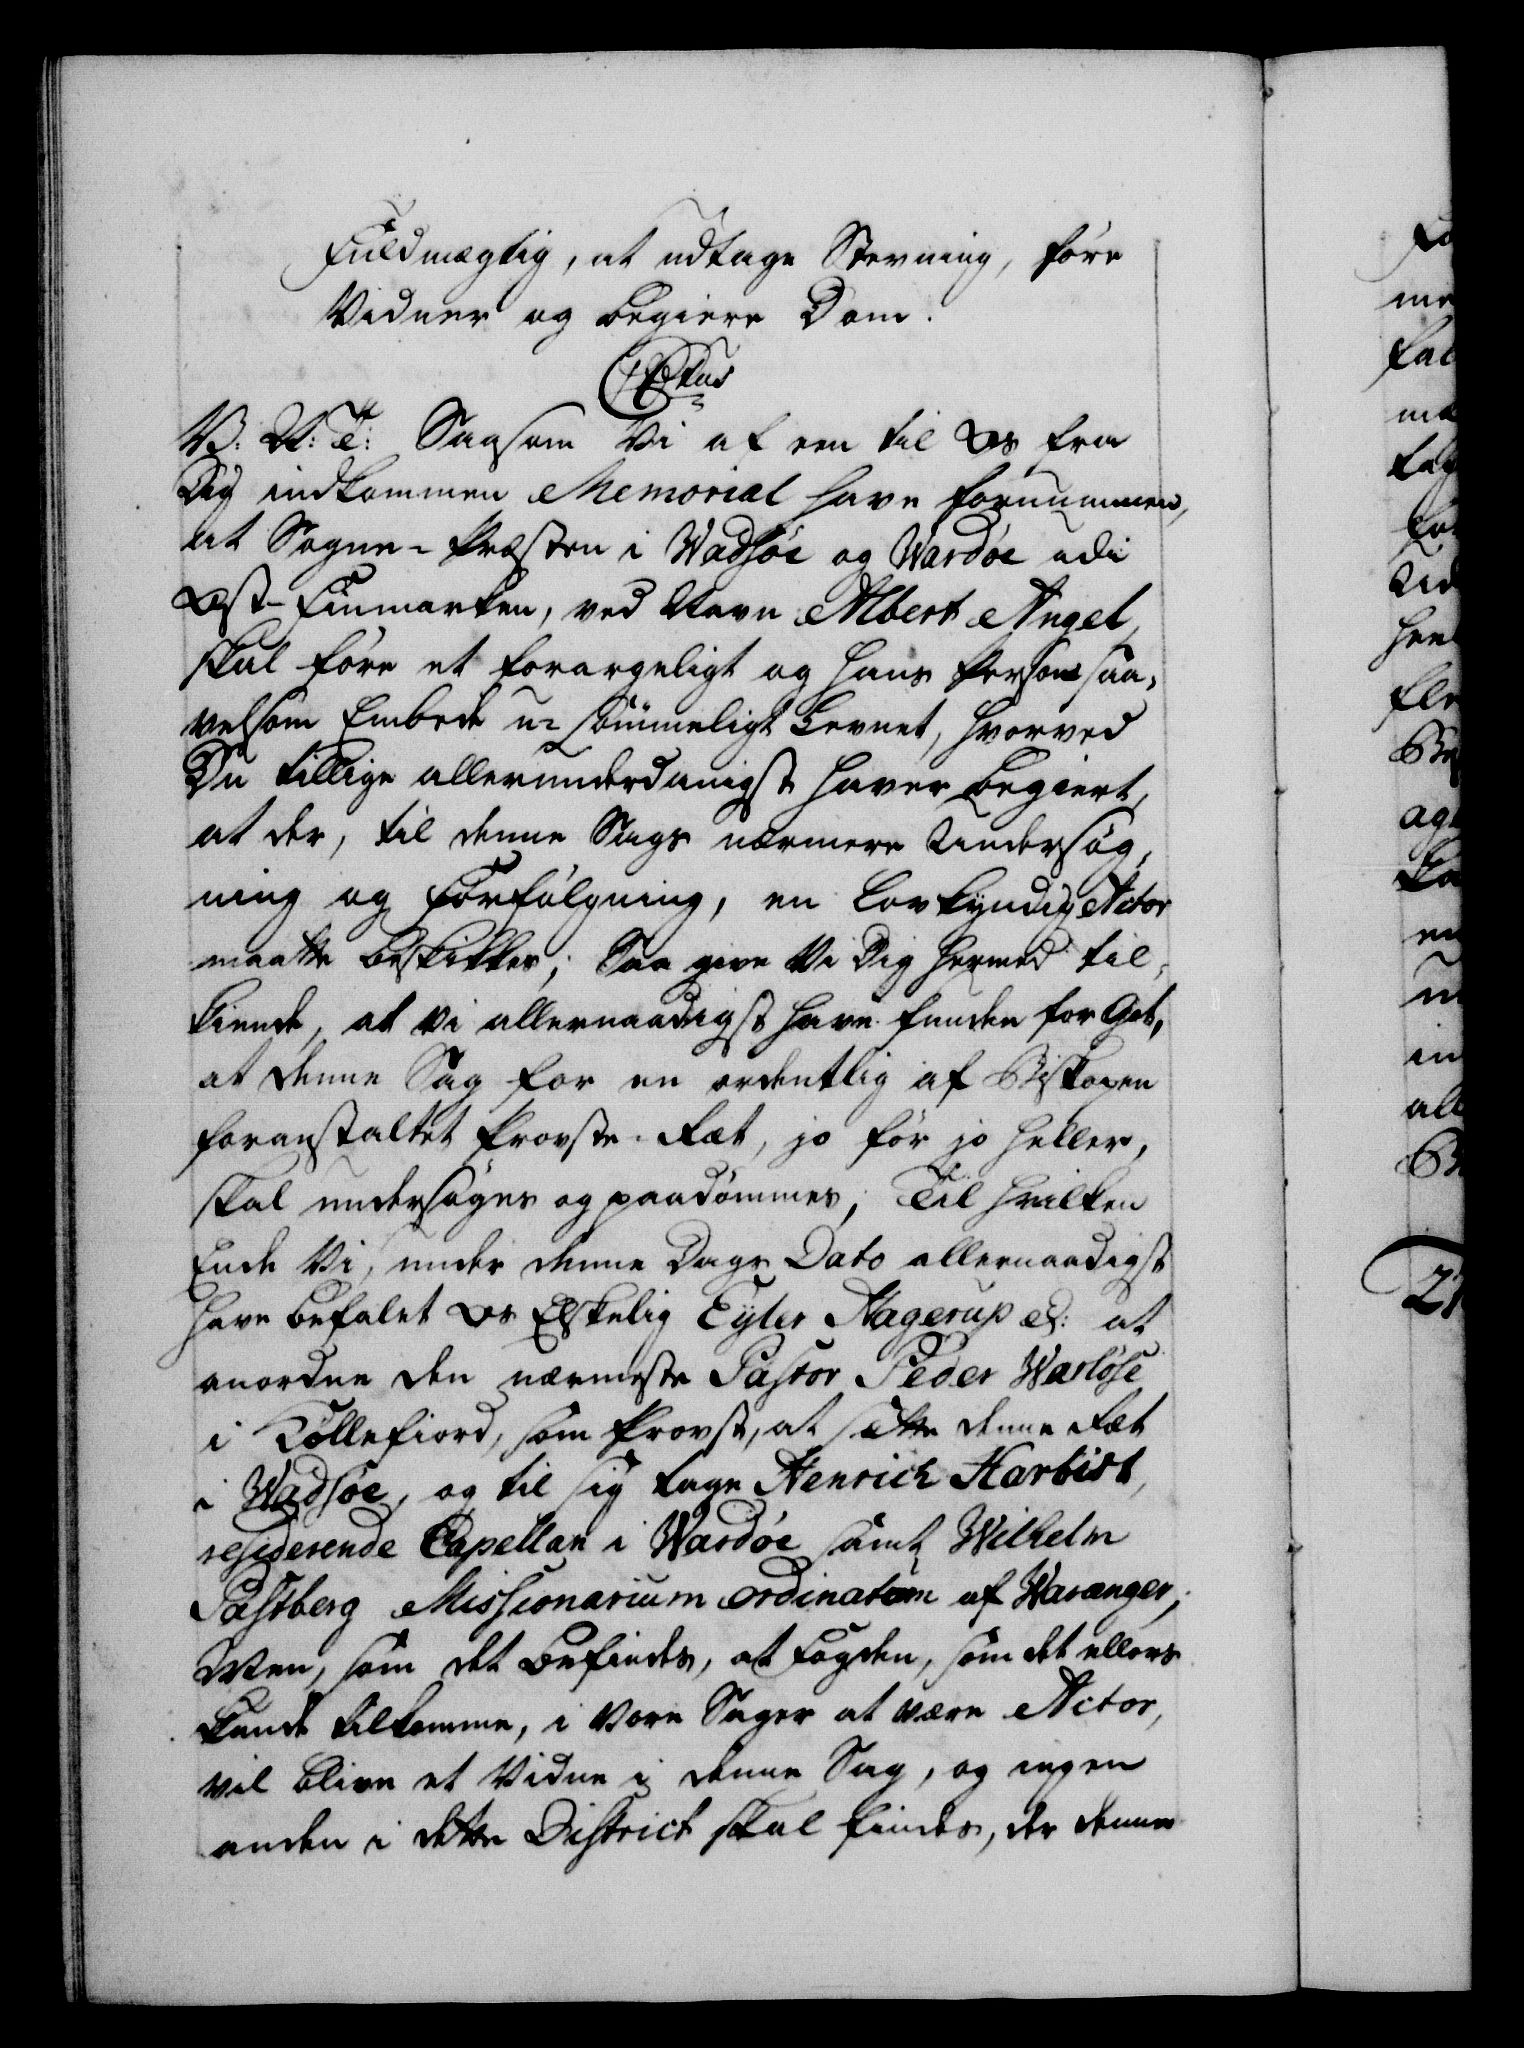 Fuldmægtig, at udtage Stevning, føre
Vidner og begiere Dom.
V: G: T: Saasom Vi af een til Os fra
Dig indkommen Memorial have fornummen,
at Sogne-Præsten i Wadsöe og Wardöe udi
Øst-Finmarken, ved Navn Albert Angel,
skal føre et forargeligt og hans Person saa-
velsom Embede u-sømmeligt Levnet, hvorved
Du tillige allerunderdanigst haver begiert,
at der, til denne Sags nærmere Undersøg-
ning og Forfølgning, en Lovkyndig Actor
maatte beskikkes; Saa give Vi Dig hermed til-
kiende, at vi allernaadigst have funden for Got,
at denne Sag for en ordentlig af Biskopen
foranstaltet Provste-Ræt, jo før jo heller,
skal undersøges og paadømmes; Til hvilken
Ende Vi, under denne Dags Dato allernaadigst
have befalet Os Elskelig Eyler Hagerup &: at
anordne den nærmeste Pastor Peder Warløse
i Kiøllefiord, som Provst, at sætte denne Ræt
i Wadsøe, og til sig tage Henrich Karbist,
residerende Capellan i Wardøe samt Wilhelm
Pastberg Missionarium ordinatum af Waranger;
Men, som det befindes, at Fogden, som det ellers
kunde tilkomme, i Vore Sager at være Actor,
vil blive et Vidne i denne Sag, og ingen
anden i dette District skal findes, der denne